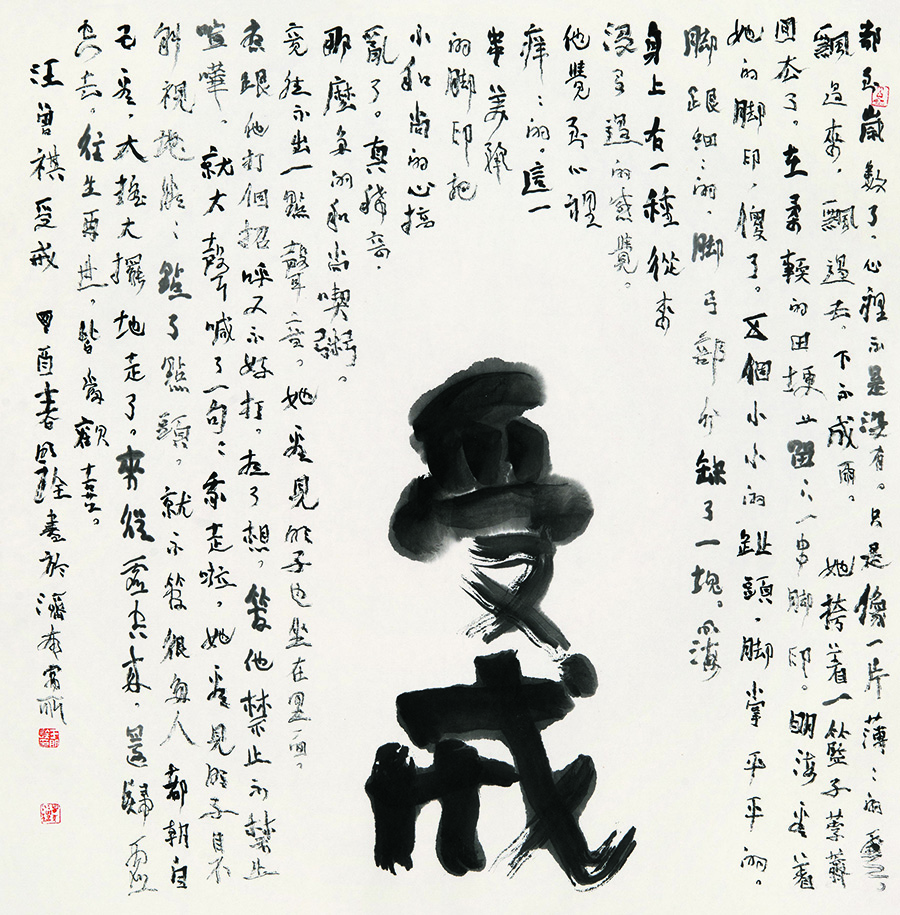 都到歲數了，心裡不是沒有。只是像一片薄〻的雲。
飄過來，飄過去，下不成雨。她挎着一籃子荸薺
回去了。在柔軟的田埂上留了一串脚印。明海看着
她的脚印，傻了。五個小小的趾頭，脚掌平平的，
脚跟細〻的，脚弓部分缺了一塊。明海
身上有一種從來
沒有過的感覺。
他覺到心裡
癢〻的。這一
串美麗
的脚印把
小和尚的心搞
亂了。真稀奇，
那麼多的和尚喫粥。
竟然不出一點聲音。她看見明子也坐在里面。
想跟他打個招呼又不好打。想了想，管他禁止不禁止
喧嘩，就大聲喊了一句：我走啦，她看見明子目不
斜視地微〻點了點頭，就不管很多人都朝自
己看，大搖大擺地走了。來從虛空來，還歸虛
空去。往生再世，皆當歡喜。
汪曾祺受戒 酉春 書於濟南寓所
受戒